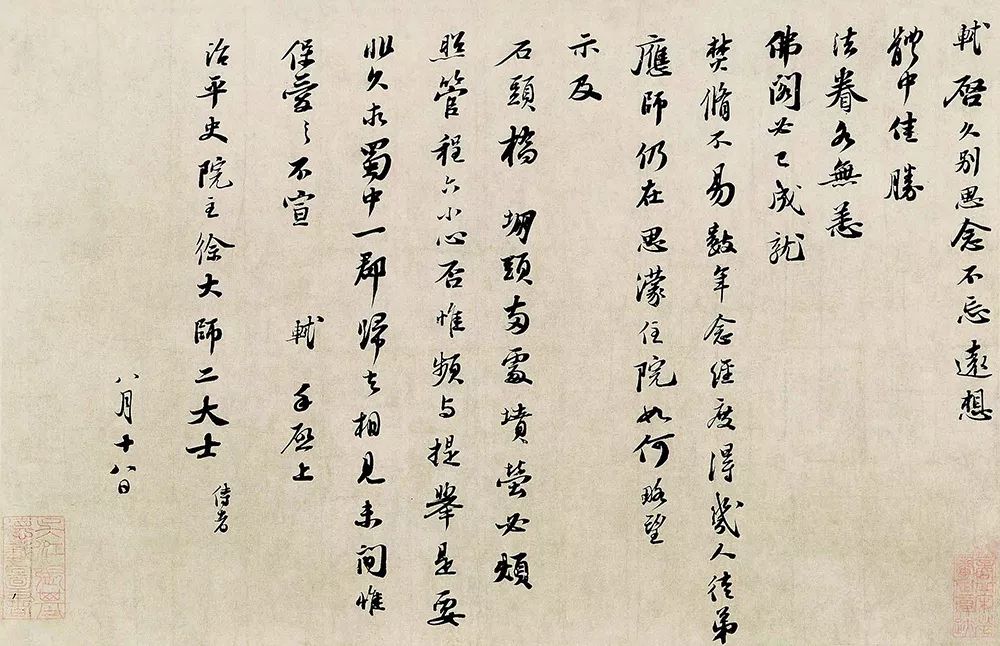 軾啓久別思念不忘遠想
體中佳勝
法眷各無恙
佛閣必已成就
焚脩不易數年念經度得幾人徒弟
應師仍在思濛住院如何略望
示及
石頭橋 堋頭兩處墳塋必煩
照管程六小心否惟頻与提舉是要
非久求蜀中一郡歸去相見未間惟
保愛之不宣 軾手啟上
治平史院主徐大師二大士 侍者
八月十八日